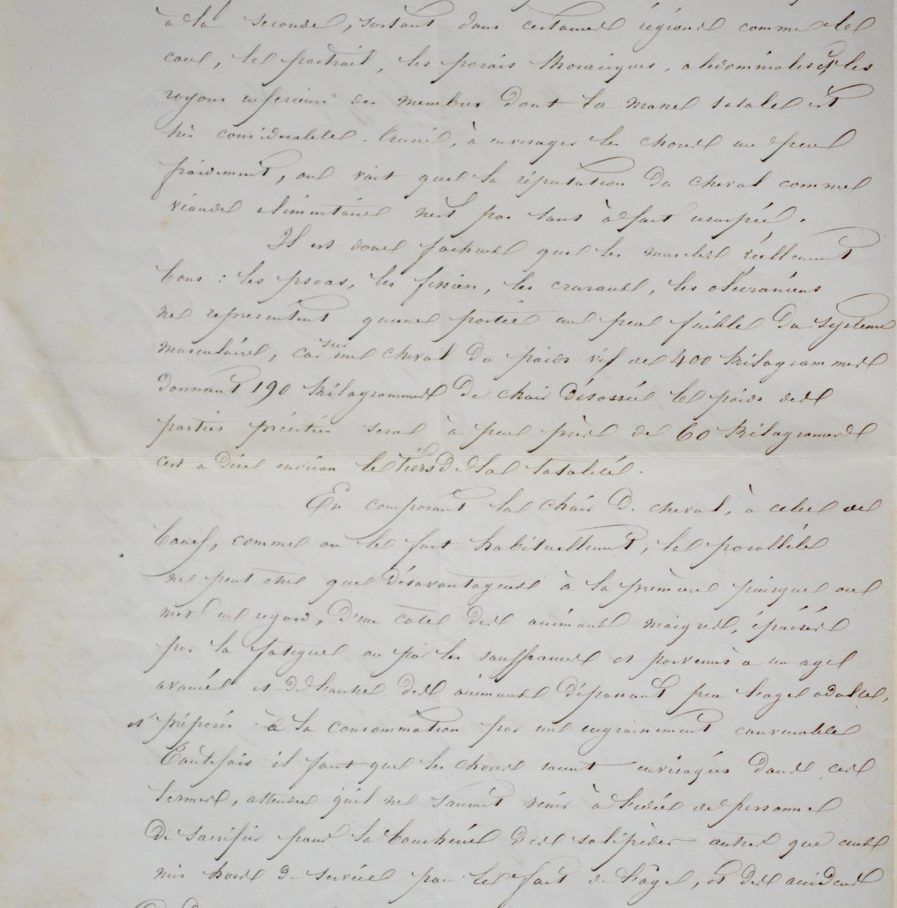 à la seconde, surtout dans certaines régions comme le
cou, le poitrail, les parois thoraciques, abdominales et les
rayons inférieurs des membres dont la masse totale est
très considérable. Ainsi, à envisager les choses un peu
froidement, on voit que la réputation du cheval comme
viande alimentaire n'est pas tout à fait usurpée.
Il est donc facheux que les muscles réellement
bons : les psoas, les fessiers, les cruraux, les olécrâniens
ne représentent qu'une portion un peu faible du système
musculaire, car sur un cheval du poids vif de 400 kilogrammes
donnant 190 kilogrammes de chair désossée le poids des
parties précitées sera à peu près de 60 kilogrammes
c'est à dire environ le tiers de la totalité.
En comparant la chair de cheval, à celle de
bœuf, comme on le fait habituellement, le parallèle
ne peut être que désavantageuse à la première puisque on
met en regard, d'un coté des animaux maigres, épuisés
par la fatigue ou par les souffrances et parvenus à un age
avancé et de l'autre des animaux dépassant peu l'age adulte,
et préparés à la consommation par un engraissement convenable
Toutefois il faut que les choses soient envisagées dans ces
termes, attendu qu'il ne saurait venir à l'idée de personne
de sacrifier pour la boucherie des solipèdes autres que ceux
mis hors de service par le fait de l'âge, et des accidents